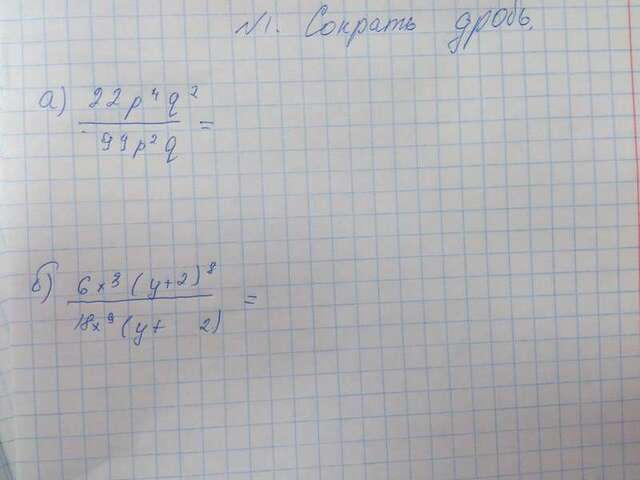 №1. Сократь дробь.
а) 22p⁴q²
99p²q =
б) 6x³(y+2)⁸
18x⁹(y+ 2) =